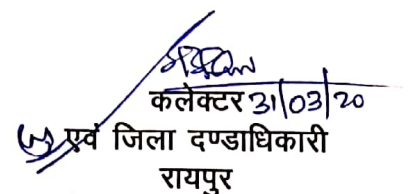 कलेक्टर 31/03/20
एवं जिला दण्डाधिकारी
रायपुर